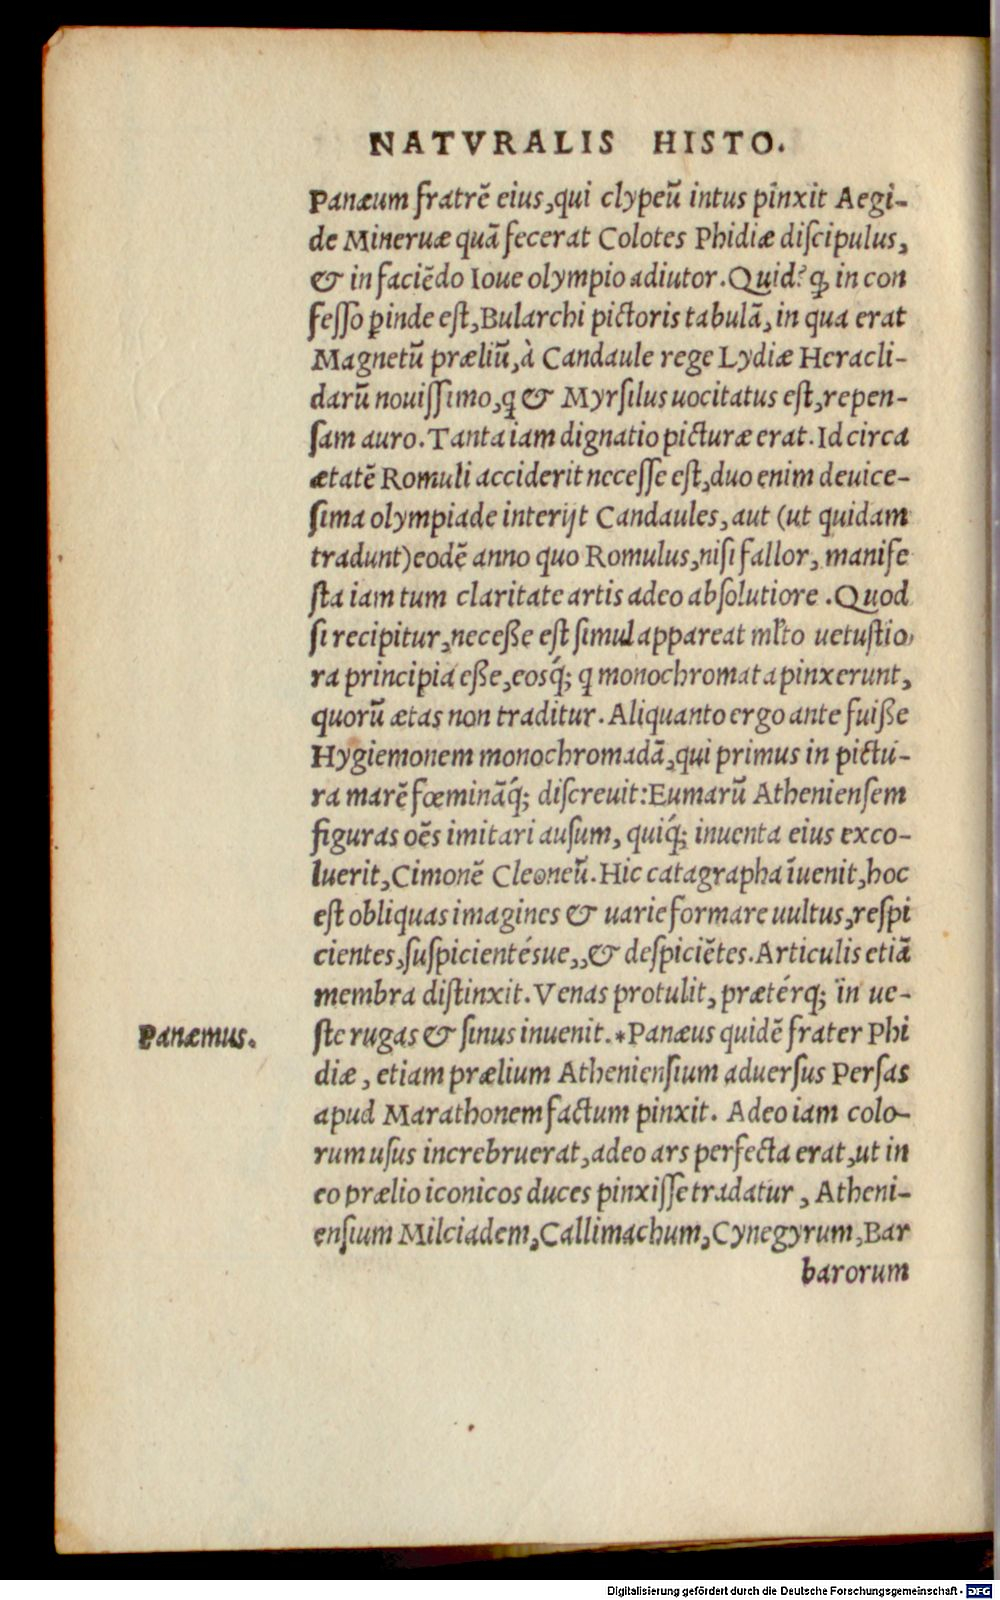 NATVRALIS HISTO.
Panæum fratrẽ eius, qui clypeũ intus pinxit Aegi-
de Mineruæ quã fecerat Colotes Phidiæ diſcipulus,
& in faciẽdo Ioue olympio adiutor. Quid? ꝙ in con
feſſo ꝑinde eſt, Bularchi pictoris tabulã, in qua erat
Magnetũ præliũ, à Candaule rege Lydiæ Heracli-
darũ nouiſſimo, ꝗ & Myrſilus uocitatus eſt, repen-
ſam auro. Tanta iam dignatio picturæ erat. Id circa
ætatẽ Romuli acciderit neceſſe eſt, duo enim deuice-
ſima olympiade interijt Candaules, aut (ut quidam
tradunt) eodẽ anno quo Romulus, niſi fallor, manife
ſta iam tum claritate artis adeo abſolutiore. Quod
ſi recipitur, neceße eſt ſimul appareat ml̃to uetuſtio-
ra principia eße, eosq́; ꝗ monochromata pinxerunt,
quorũ ætas non traditur. Aliquanto ergo ante fuiße
Hygiemonem monochromadã, qui primus in pictu-
ra marẽ fœminãq́; diſcreuit: Eumarũ Athenienſem
figuras oẽs imitari auſum, quiq́; inuenta eius exco-
luerit, Cimonẽ Cleoneũ. Hic catagrapha ĩuenit, hoc
eſt obliquas imagines & uarie formare uultus, reſpi
cientes, ſuſpicientésue,, & deſpiciẽtes. Articulis etiã
membra diſtinxit. Venas protulit, prætérq; in ue-
ſte rugas & ſinus inuenit. *Panæus quidẽ frater Phi
Panæmus.
diæ, etiam prælium Athenienſium aduerſus Perſas
apud Marathonem factum pinxit. Adeo iam colo-
rum uſus increbruerat, adeo ars perfecta erat, ut in
eo prælio iconicos duces pinxiſſe tradatur, Atheni-
enſium Milciadem, Callimachum, Cynegyrum, Bar
barorum
Digitalisierung gefördert durch die Deutsche Forschungsgemeinschaft - DFG